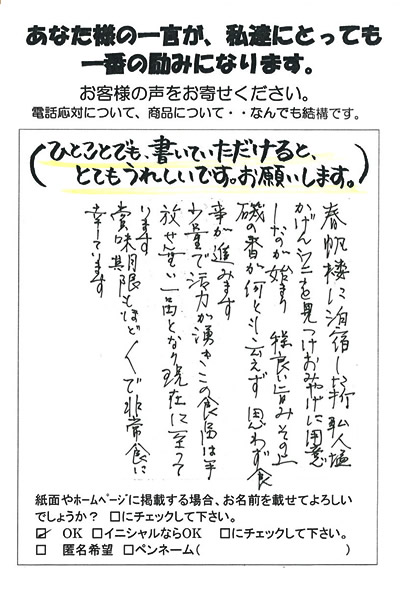 あなた様の一言が、私達にとっても
一番の励みになります。
お客様の声をお寄せください。
電話応対について、商品について・・なんでも結構です。
(ひとことでも、書いていただけると、
とてもうれしいです。お願いします。)
春帆楼に泊宿した折
かげんウニを見つけおみやげに用意
したのが始まり 程良い旨みその上
磯の香が何とも云えず 思わず食
事が進みます
少量で活力が湧きこの食品は手
放せない一品となり現在に至って
います
賞味期限もほどよくで非常食に
幸ています
紙面やホームページに掲載する場合、お名前を載せてよろしい
でしょうか? □にチェックして下さい。
☑ OK □イニシャルならOK □にチェックして下さい。
□ 匿名希望 □ペンネーム( )